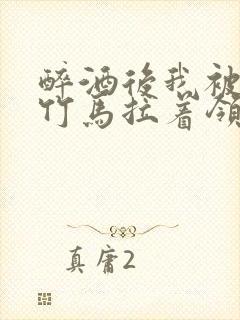 醉酒後我被
竹馬拉着領
真庸2